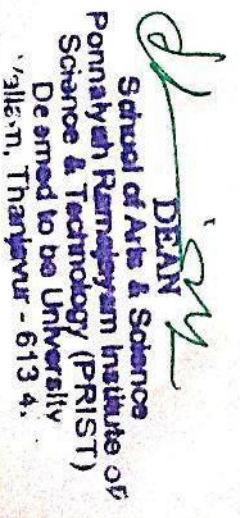 DEAN
School of Arts & Science
Ponnaiyah Ramajayam Institute of
Science & Technology (PRIST)
Deemed to be University
Vallam, Thanjavur - 613 4.